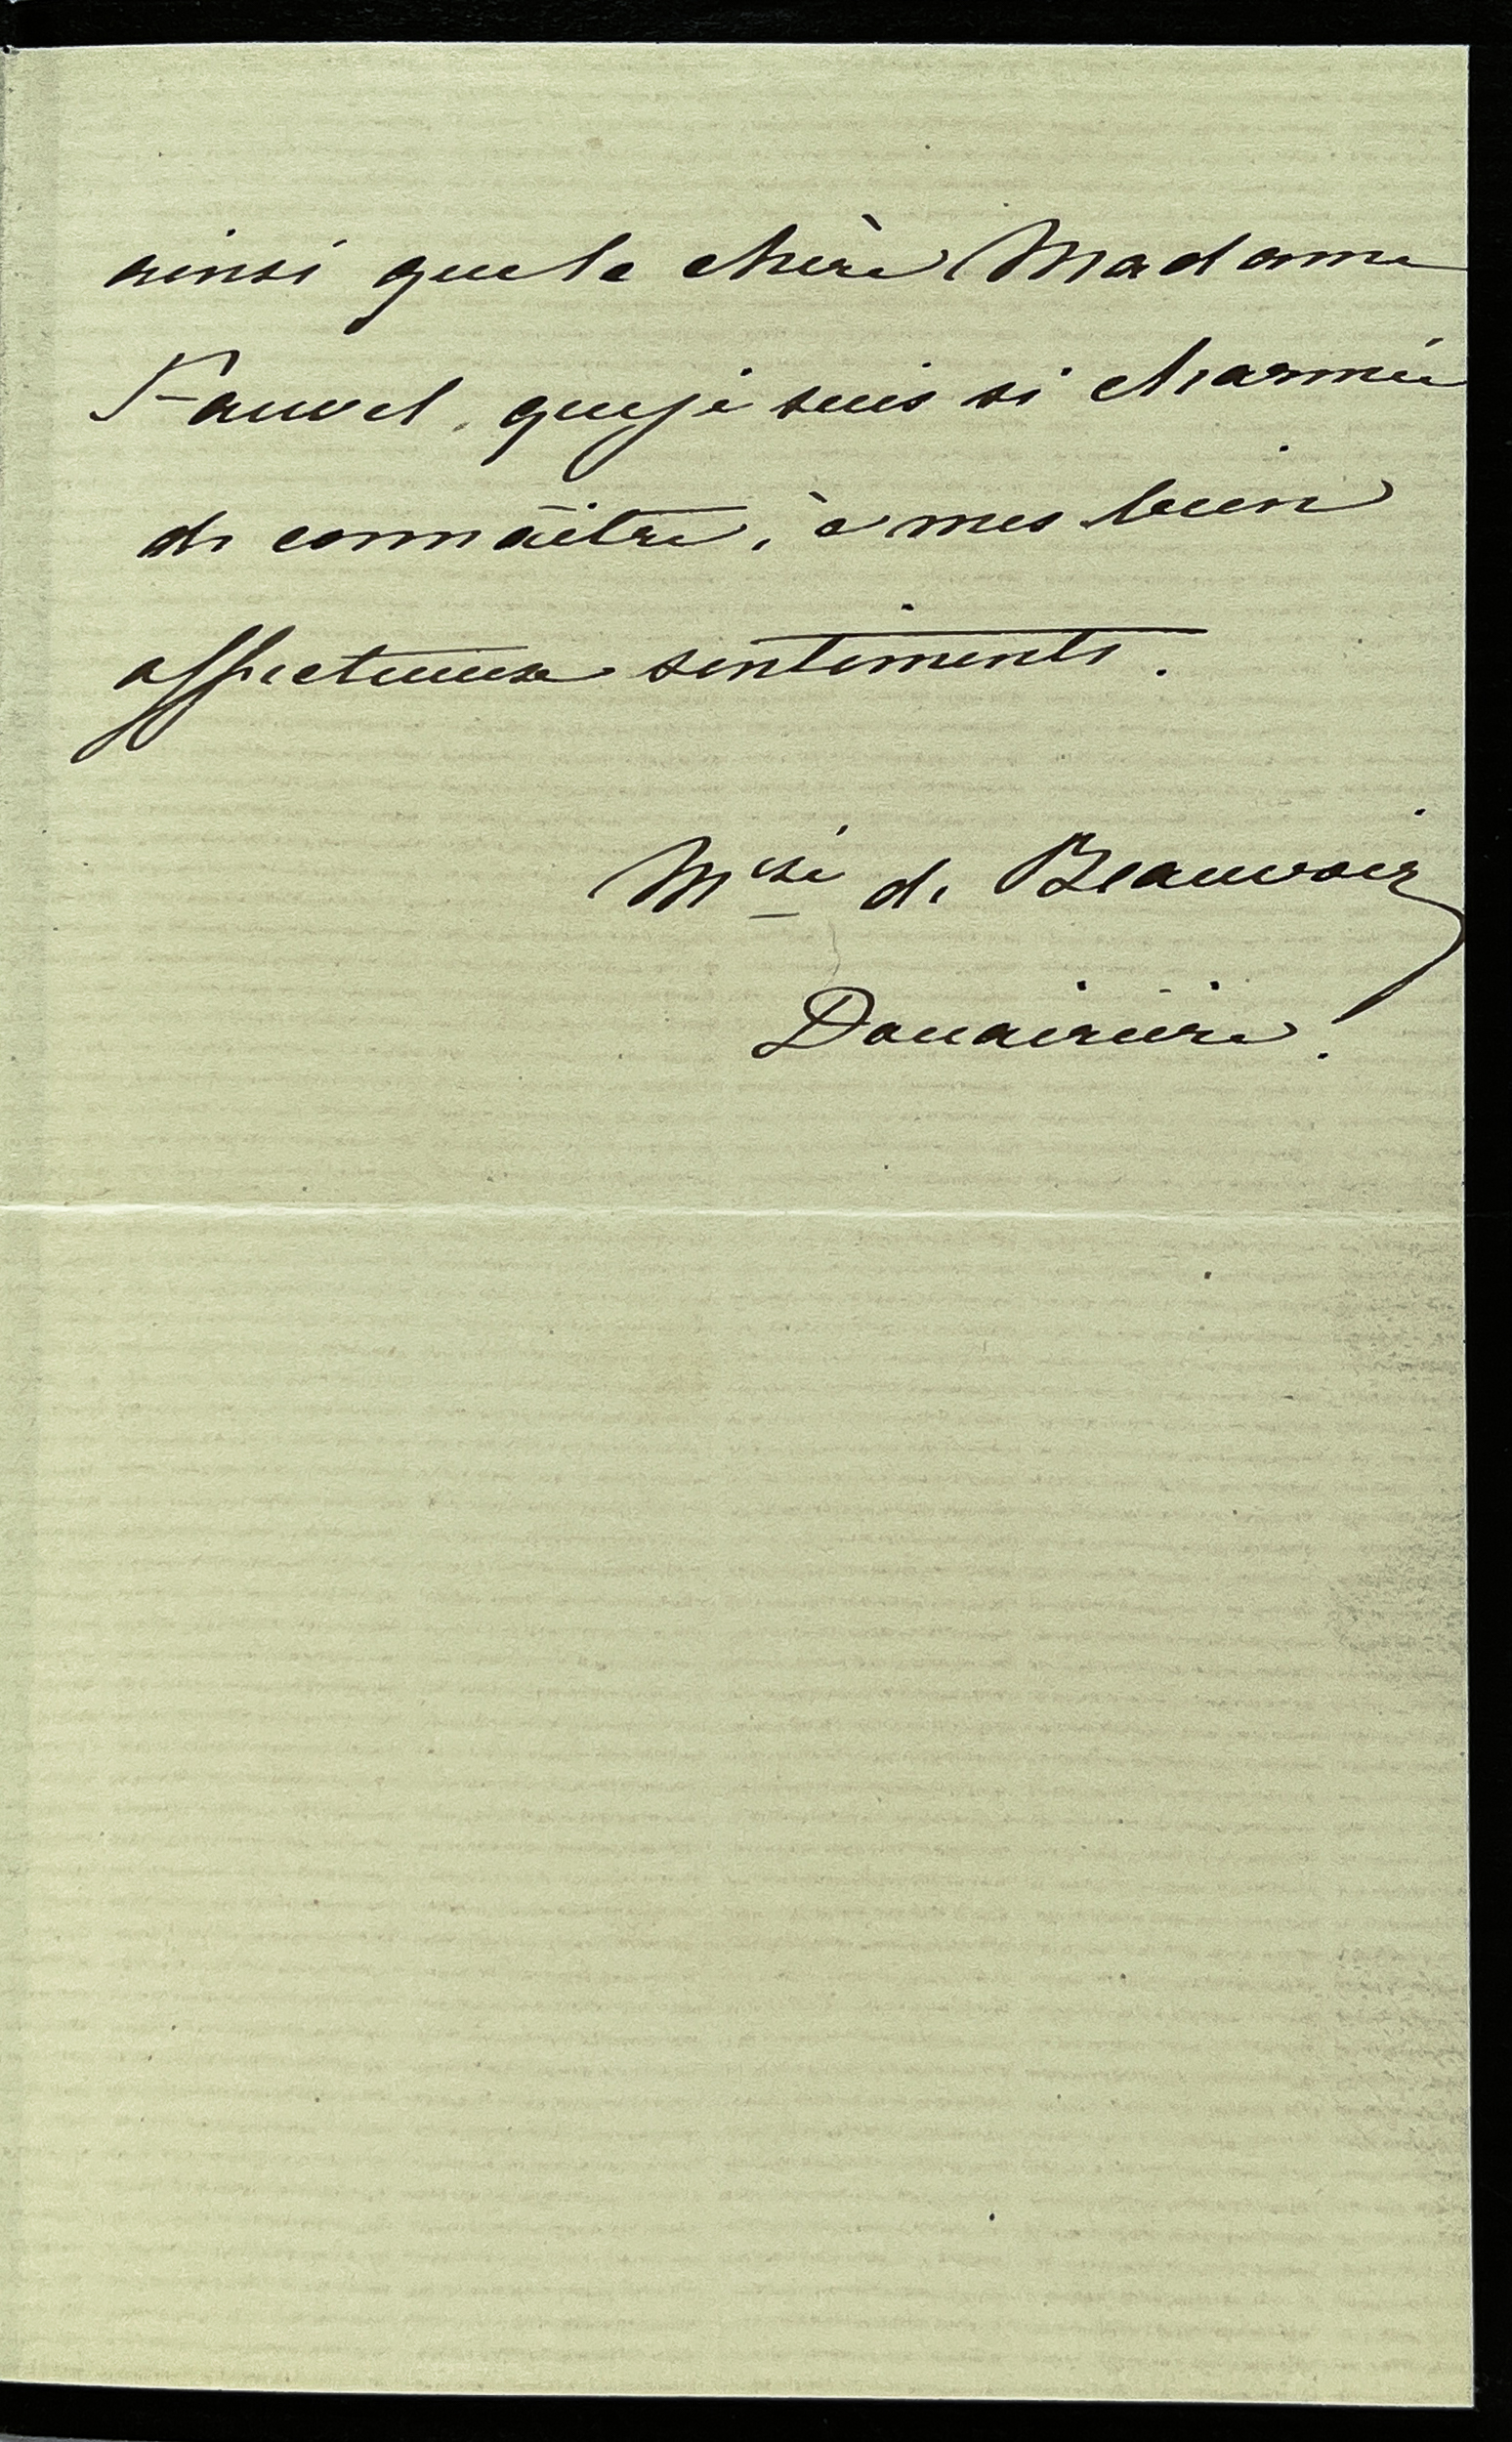 ainsi que la chère Madame
Fauvel, que je suis si charmée
de connaître, à mes bien
affectueux sentiments.
Mise de Beauvoir
Douairière.